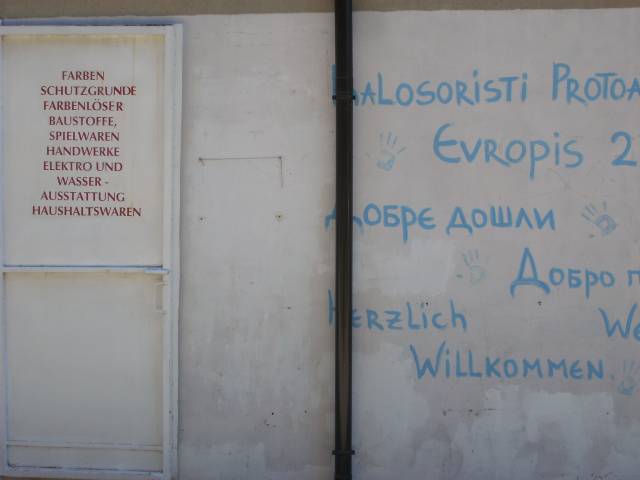 FARBEN
SCHUTZGRUNDE
FARBENLÖSER
BAUSTOFFE,
SPIELWAREN
HANDWERKE
ELEKTRO UND
WASSER -
AUSSTATTUNG
HAUSHALTSWAREN
KALOSORISTI PROTOA
EVROPIS 2
ДОБРЕ ДОШЛИ
ДОБРО П
HERZLICH WE
WILLKOMMEN